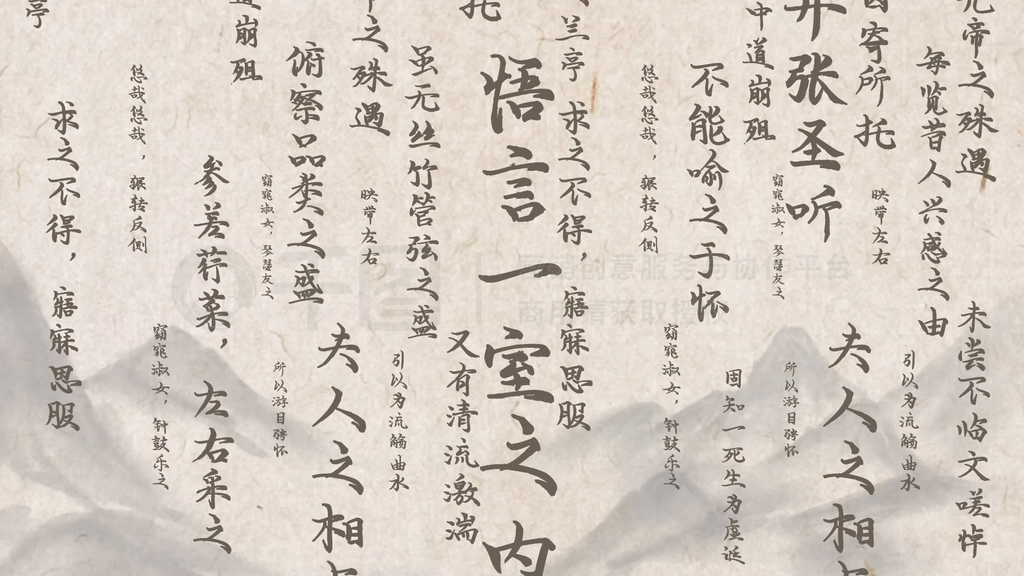 元帝之殊遇
未尝不临文嗟悼
每览昔人兴感之由
引以为流觞曲水
因寄所托
映带左右
开张圣听
夫人之相与
窈窕淑女，琴瑟友之
所以游目骋怀
中道崩殂
固知一死生为虚诞
不能喻之于怀
悠哉悠哉，辗转反侧
窈窕淑女，钟鼓乐之
兰亭
求之不得，寤寐思服
悟言一室之内
托
又有清流激湍
虽无丝竹管弦之盛
引以为流觞曲水
之殊遇
映带左右
俯察品类之盛
夫人之相与
窈窕淑女，琴瑟友之
所以游目骋怀
道崩殂
参差荇菜，左右采之
悠哉悠哉，辗转反侧
窈窕淑女，钟鼓乐之
亭
求之不得，寤寐思服
千图
营销创意服务与协作平台
商用请获取授